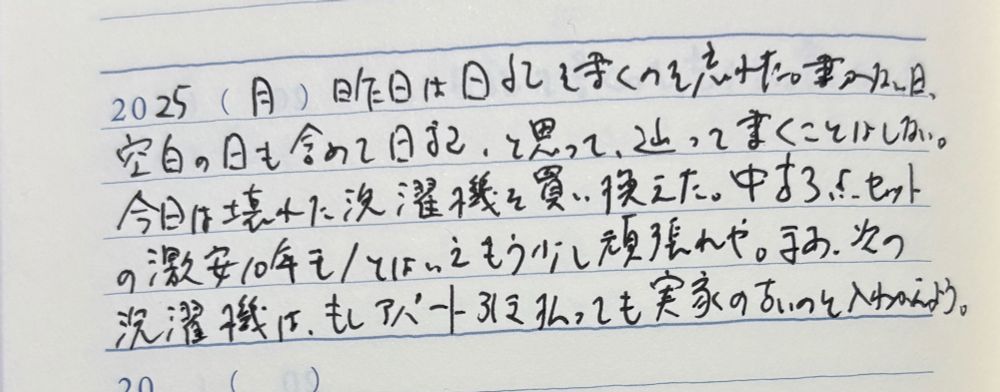 2025(月) 昨日は日記を書くのを忘れた。書かない日、
空白の日も含めて日記、と思って、辿って書くことはしない。
今日は壊れた洗濯機を買い換えた。中古3点セット
の激安10年モノとはいえもう少し頑張れや。まあ、次の
洗濯機は、もしアパート引き払っても実家の古いのと入れかえよう。
20 ( )